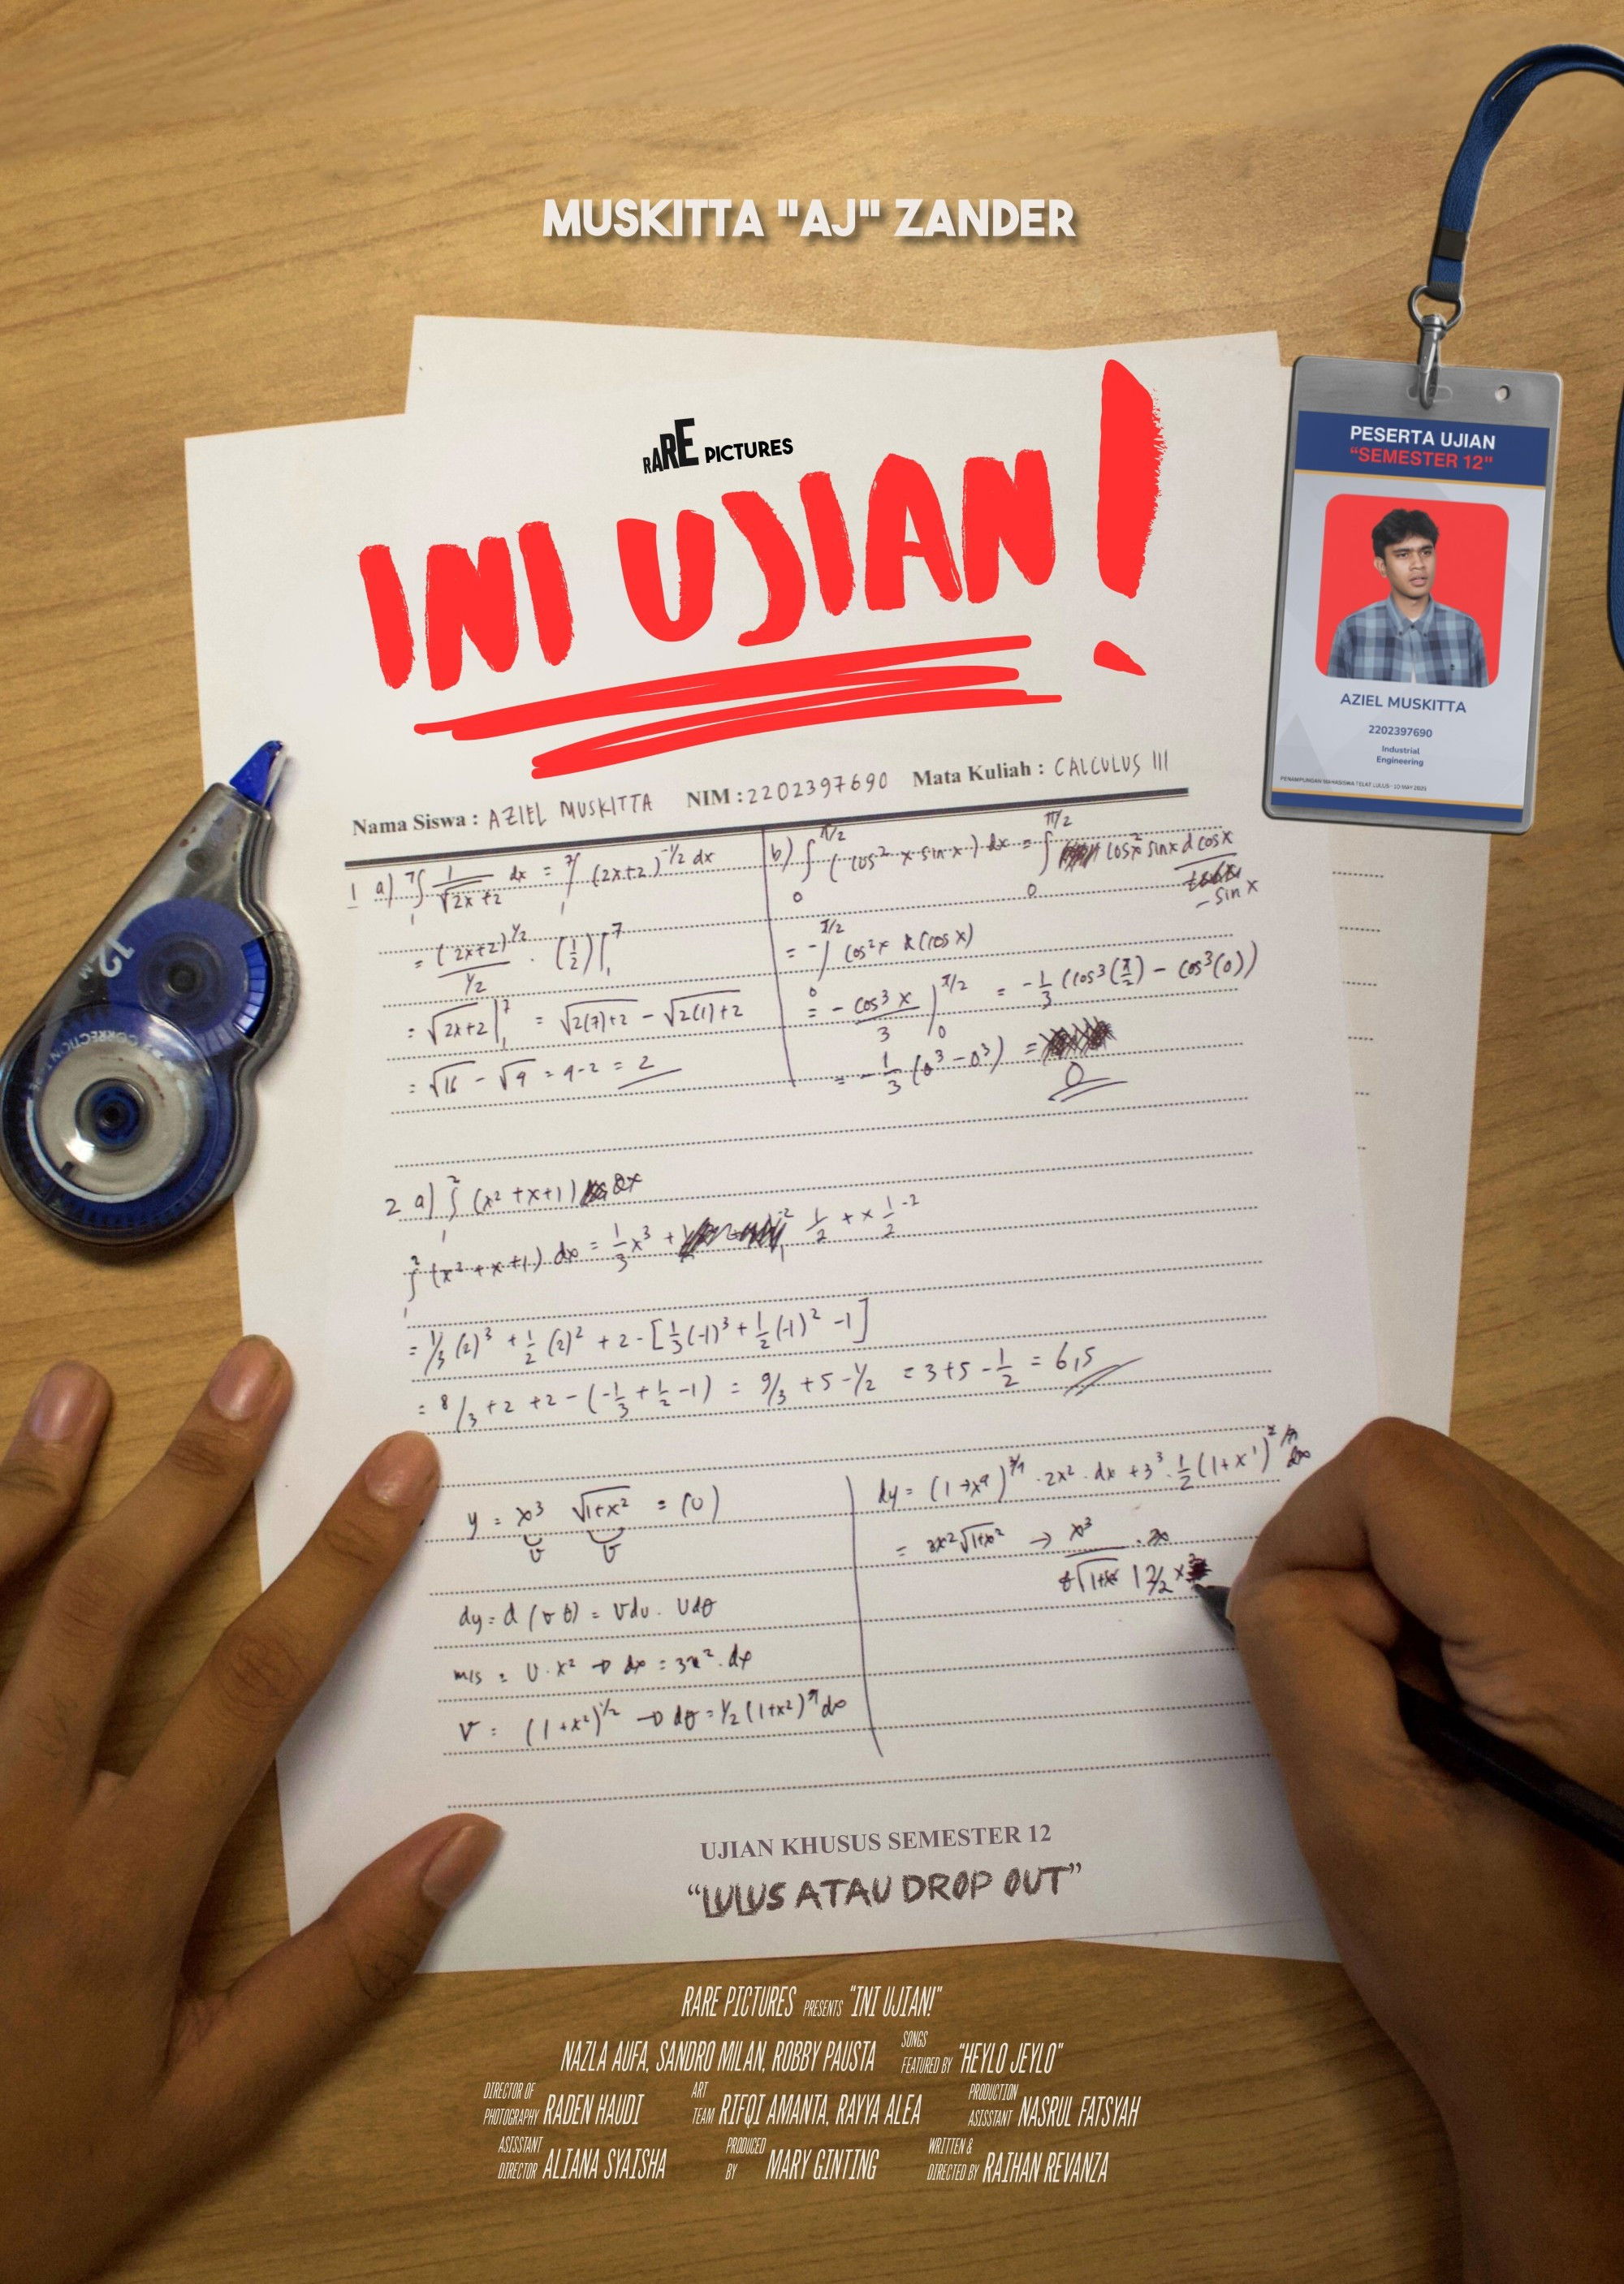 MUSKITTA "AJ" ZANDER
RARE PICTURES
INI UJIAN!
PESERTA UJIAN
"SEMESTER 12"
AZIEL MUSKITTA
2202397690
Industrial
Engineering
PENAMPUNGAN MAHASISWA TELAT LULUS - 10 MAY 2025
Nama Siswa : AZIEL MUSKITTA NIM : 2202397690 Mata Kuliah : CALCULUS III
1 a) ⁷∫₁ 1/√2x+2 dx = ⁷∫₁ (2x+2)^-1/2 dx
= (2x+2)^1/2 / 1/2 . (1/2) |₁⁷
= √2x+2 |₁⁷ = √2(7)+2 - √2(1)+2
= √16 - √4 = 4-2 = 2
b) ∫₀^π/2 (cos² x sin x) dx = ∫₀^π/2 cos²x sin x d cos x / - sin x
= - ∫₀^π/2 cos²x d(cos x)
= - cos³ x / 3 |₀^π/2 = -1/3 (cos³(π/2) - cos³(0))
= -1/3 (0³ - 0³) = 0
2 a) ∫₁² (x² + x + 1) dx
∫₁² (x² + x + 1) dx = 1/3 x³ +
= 1/3 (2)³ + 1/2 (2)² + 2 - [1/3 (-1)³ + 1/2 (-1)² - 1]
= 8/3 + 2 + 2 - (-1/3 + 1/2 - 1) = 9/3 + 5 - 1/2 = 3 + 5 - 1/2 = 6,5
y = x³ √1+x² = (U)
dy = d = Vdu . Udθ
m/s = U . x² → dx = 3x² . dx
V = (1+x²)^1/2 → dθ = 1/2 (1+x²)
= 3x² √1+x² → x³
UJIAN KHUSUS SEMESTER 12
"LULUS ATAU DROP OUT"
12 M
CORRECTION
RARE PICTURES PRESENTS "INI UJIAN!"
NAZLA AUFA, SANDRO MILAN, ROBBY PAUSTA SONGS FEATURED BY "HEYLO JEYLO"
DIRECTOR OF PHOTOGRAPHY RADEN HAUDI ART TEAM RIFQI AMANTA, RAYYA ALEA PRODUCTION ASISSTANT NASRUL FATSYAH
ASISSTANT DIRECTOR ALIANA SYAISHA PRODUCED BY MARY GINTING WRITTEN & DIRECTED BY RAIHAN REVANZA